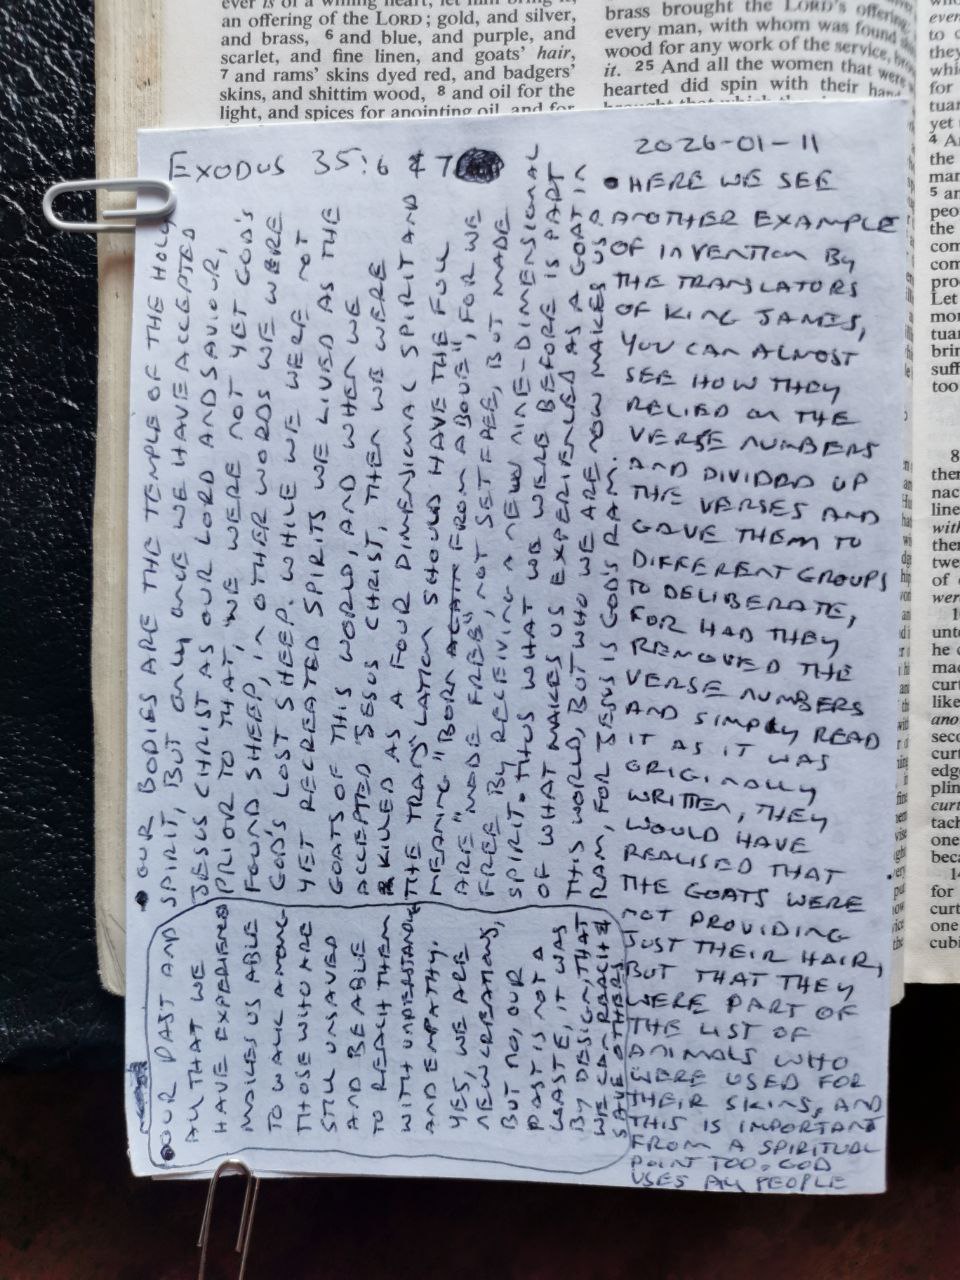 an offering of the LORD; gold, and silver,
and brass, 6 and blue, and purple, and
scarlet, and fine linen, and goats' hair,
7 and rams' skins dyed red, and badgers'
skins, and shittim wood, 8 and oil for the
light, and spices for anointing oil, and for
brass brought the LORD's offering
every man, with whom was found
wood for any work of the service,
it. 25 And all the women that were
hearted did spin with their
EXODUS 35:6 & 7
2026-01-11
• HERE WE SEE
ANOTHER EXAMPLE
OF INVENTION BY
THE TRANSLATORS
OF KING JAMES,
YOU CAN ALMOST
SEE HOW THEY
RELIED ON THE
VERSE NUMBERS
AND DIVIDED UP
THE VERSES AND
GAVE THEM TO
DIFFERENT GROUPS
TO DELIBERATE,
FOR HAD THEY
REMOVED THE
VERSE NUMBERS
AND SIMPLY READ
IT AS IT WAS
ORIGINALLY
WRITTEN, THEY
WOULD HAVE
REALISED THAT
THE GOATS WERE
NOT PROVIDING
JUST THEIR HAIR,
BUT THAT THEY
WERE PART OF
THE LIST OF
ANIMALS WHO
WERE USED FOR
THEIR SKINS, AND
THIS IS IMPORTANT
FROM A SPIRITUAL
POINT TOO. GOD
USES ALL PEOPLE
• OUR BODIES ARE THE TEMPLE OF THE HOLY
SPIRIT, BUT ONLY ONCE WE HAVE ACCEPTED
JESUS CHRIST AS OUR LORD AND SAVIOUR,
PRIOR TO THAT, WE WERE NOT YET GOD'S
FOUND SHEEP, IN OTHER WORDS WE WERE
GOD'S LOST SHEEP. WHILE WE WERE NOT
YET RECREATED SPIRITS WE LIVED AS THE
GOATS OF THIS WORLD, AND WHEN WE
ACCEPTED JESUS CHRIST, THEN WE WERE
KILLED AS A FOUR DIMENSIONAL SPIRIT AND
THE TRANSLATION SHOULD HAVE THE FULL
MEANING "BORN AGAIN FROM ABOVE", FOR WE
ARE "MADE FREE", NOT SET FREE, BUT MADE
FREE BY RECEIVING A NEW NINE-DIMENSIONAL
SPIRIT. THUS WHAT WE WERE BEFORE IS PART
OF WHAT MAKES US EXPERIENCED AS A GOAT IN
THIS WORLD, BUT WHO WE ARE NOW MAKES US A
RAM, FOR JESUS IS GOD'S RAM.
• OUR PAST AND
ALL THAT WE
HAVE EXPERIENCED
MAKES US ABLE
TO WALK AMONG
THOSE WHO ARE
STILL UNSAVED
AND BE ABLE
TO REACH THEM
WITH UNDERSTANDING
AND EMPATHY.
YES, WE ARE
NEW CREATIONS,
BUT NO, OUR
PAST IS NOT A
WASTE, IT WAS
BY DESIGN, THAT
WE CAN REACH &
SAVE OTHERS